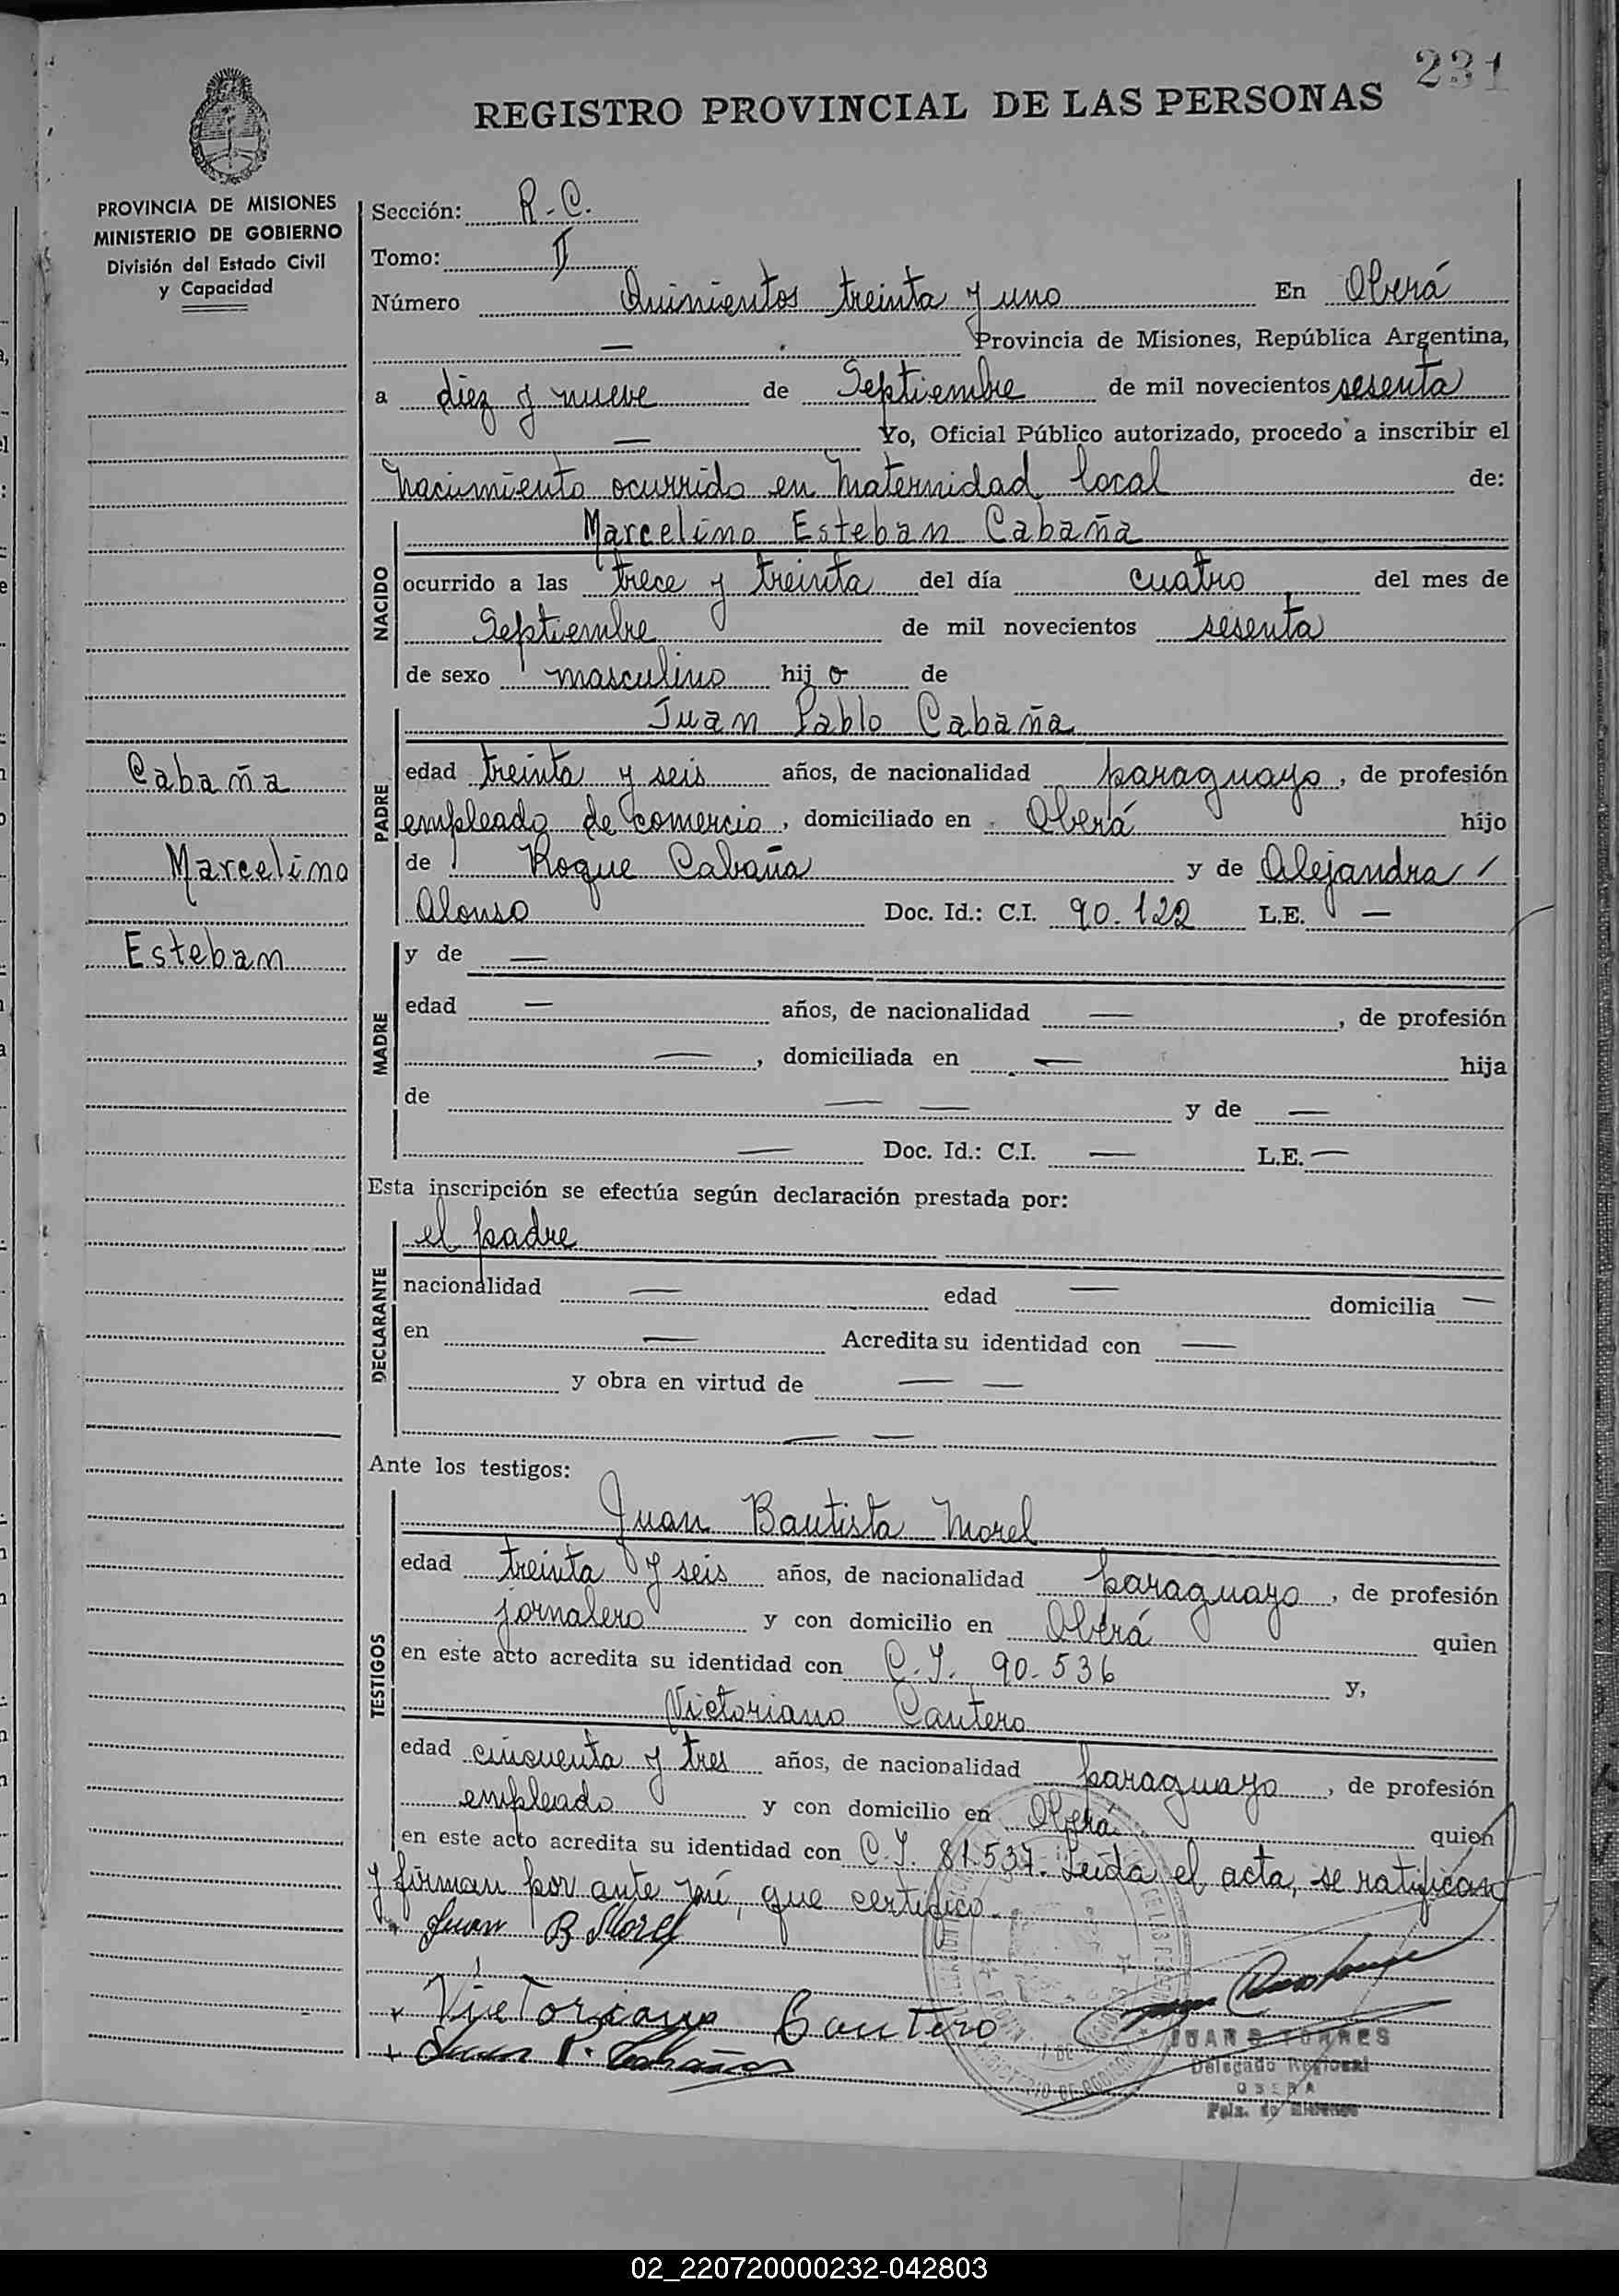 231
REGISTRO PROVINCIAL DE LAS PERSONAS
PROVINCIA DE MISIONES
MINISTERIO DE GOBIERNO
División del Estado Civil
y Capacidad
Sección: R.C.
Tomo: II
Número Quinientos treinta y uno En Oberá
— Provincia de Misiones, República Argentina,
a diez y nueve de Septiembre de mil novecientos sesenta
— Yo, Oficial Público autorizado, procedo a inscribir el
nacimiento ocurrido en Maternidad local de:
NACIDO
Marcelino Esteban Cabaña
ocurrido a las trece y treinta del día cuatro del mes de
Septiembre de mil novecientos sesenta
de sexo masculino hijo de
PADRE
Juan Pablo Cabaña
Cabaña
Marcelino
Esteban
edad treinta y seis años, de nacionalidad paraguayo, de profesión
empleado de comercio, domiciliado en Oberá hijo
de Roque Cabaña y de Alejandra /
Alonso Doc. Id.: C.I. 90.122 L.E. —
MADRE
y de —
edad — años, de nacionalidad — , de profesión
— , domiciliada en — hija
de — — y de —
— Doc. Id.: C.I. — L.E. —
Esta inscripción se efectúa según declaración prestada por:
DECLARANTE
el padre
nacionalidad — edad — domicilia —
en — Acredita su identidad con —
y obra en virtud de — —
— —
Ante los testigos:
TESTIGOS
Juan Bautista Morel
edad treinta y seis años, de nacionalidad paraguayo, de profesión
jornalero y con domicilio en Oberá quien
en este acto acredita su identidad con C.I. 90.536 y,
Victoriano Cantero
edad cincuenta y tres años, de nacionalidad paraguayo, de profesión
empleado y con domicilio en Oberá quien
en este acto acredita su identidad con C.I. 81.537. Leída el acta, se ratifican
y firman por ante mí, que certifico.
Juan B Morel
+ Victoriano Cantero
+ Juan P. Cabañas
JUAN TORRES
Delegado Regional
OBERA
Pcia. de Misiones
02_220720000232-042803